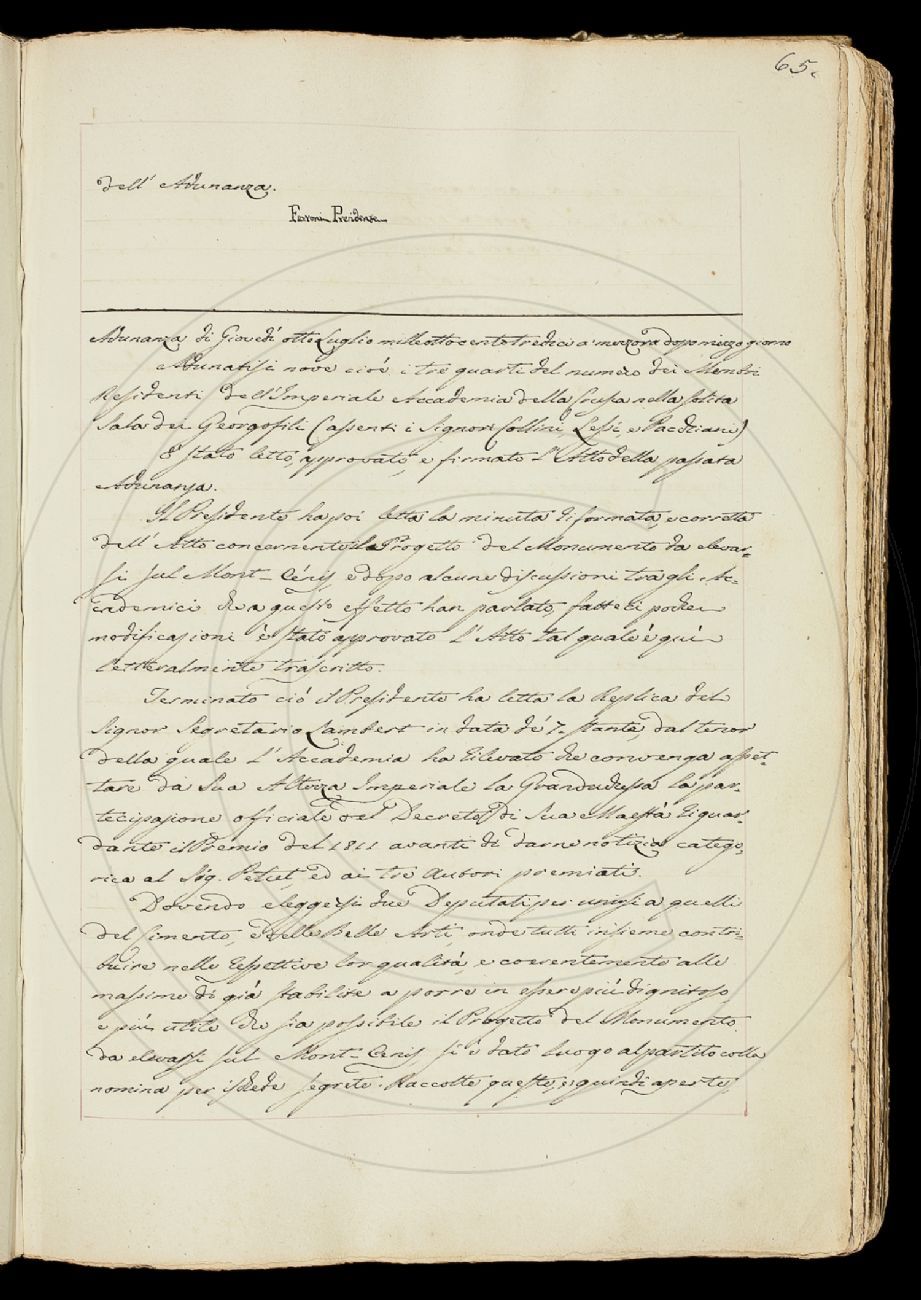 65.
dell' Adunanza.
Ferroni Presidente
Adunanza di Giovedì otto Luglio milleottocentotredici a mezzora dopo mezzo giorno
Adunatisi nove cioè i tre quarti del numero dei Membri
Residenti dell'Imperiale Accademia della Crusca nella solita
Sala dei Georgofili (assenti i Signori Collini, Lessi, e Pacchiani)
E' stato letto, approvato, e firmato l'Atto della passata
Adunanza.
Il Presidente ha poi letta la minuta riformata, e corretta
dell'Atto concernente il Progetto del Monumento da elevar-
si sul Mont-Cénis, e dopo alcune discussioni tra gli Ac-
cademici che a questo effetto han parlato, fatte di poche
modificazioni è stato approvato l'Atto tal quale è quì
letteralmente trascritto.
Terminato ciò il Presidente ha letta la Replica del
Signor Segretario Lambert in data de' 7. stante, dal tenor
della quale l'Accademia ha rilevato che convenga aspet-
tare da Sua Altezza Imperiale la Granduchessa la par-
tecipazione officiale del Decreto di Sua Maestà riguar-
dante il Premio del 1811 avanti di darne notizia catego-
rica al Sig. Petiet, ed ai tre Autori premiati.
Dovendo eleggersi due Deputati per unirsi a quelli
del Cimento, e delle Belle Arti, onde tutti insieme contri-
buire nelle respettive lor qualità, e coerentemente alle
massime di già stabilite a porre in essere più dignitoso
e più utile che sia possibile il Progetto del Monumento
da elevarsi sul Mont-Cenis si è dato luogo al partito colla
nomina per ischede segrete. Raccolte queste, e quindi aperte,